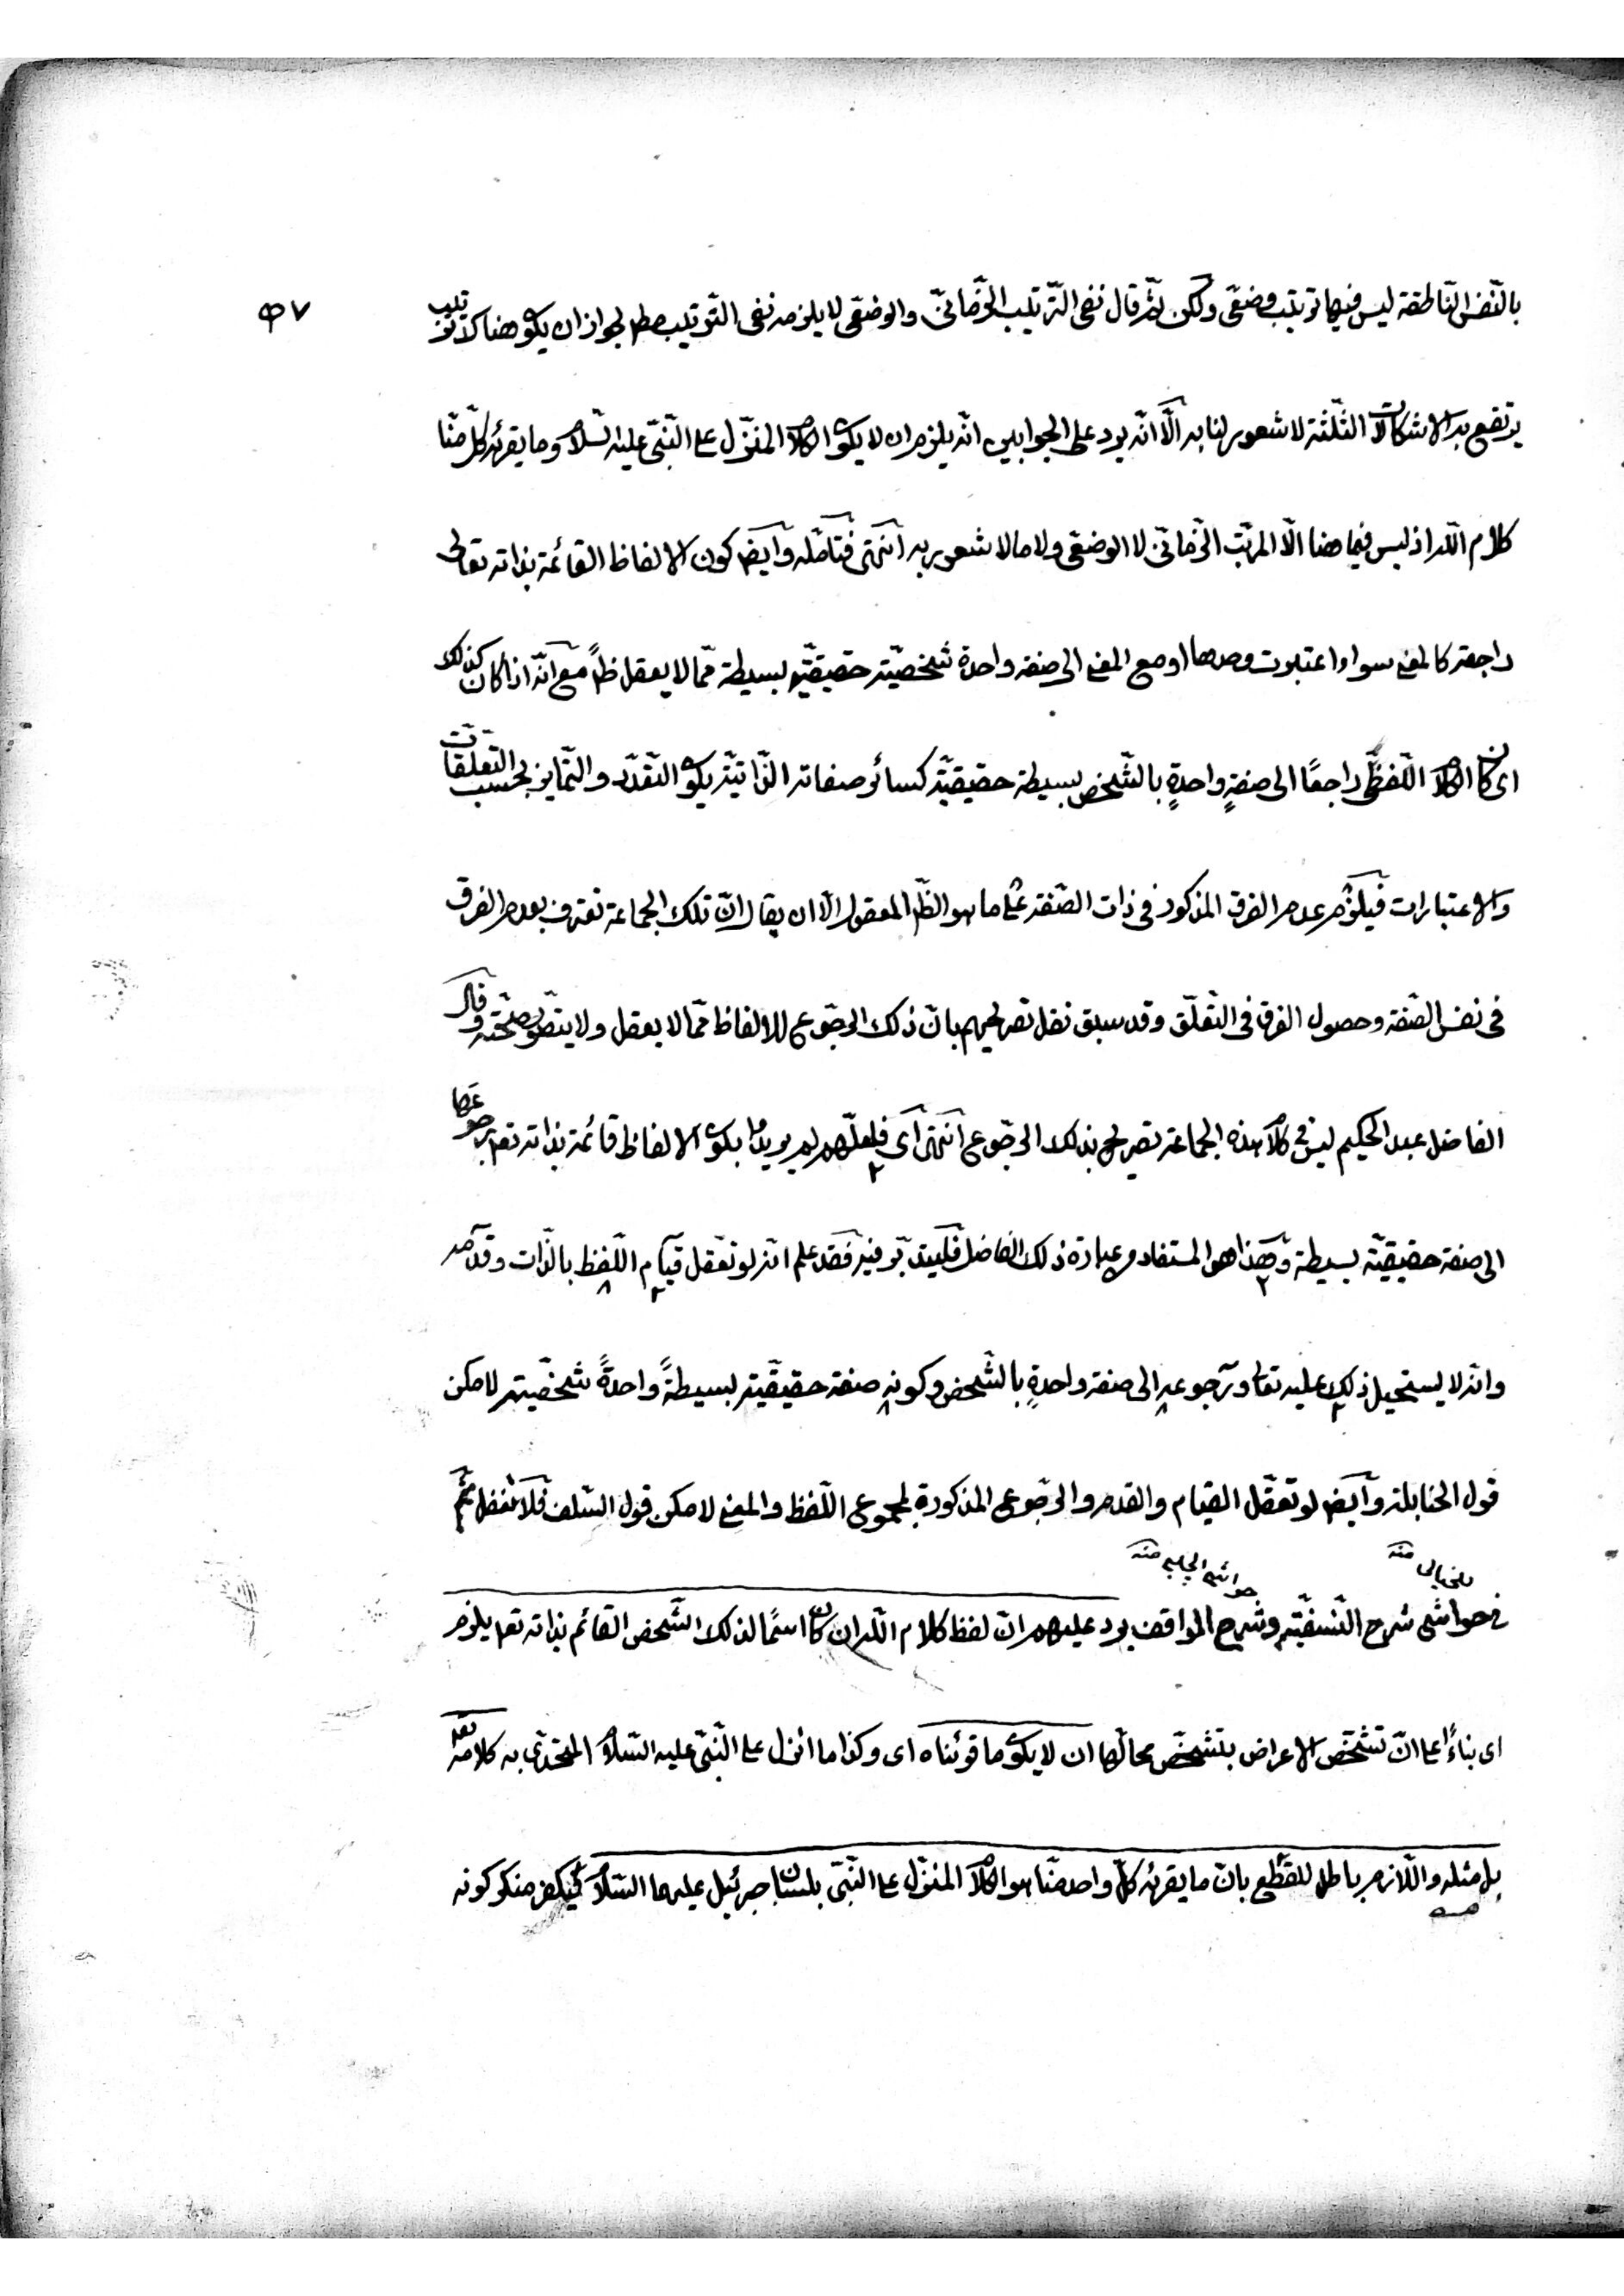 ٥٧
بالنّفس النّاطقة ليس فيها ترتيب وضعّى ولكن ثمّ قال نفى التّرتيب الزّمانىّ والوضعّى لا يلزمه نفى التّرتيب مطم لجواز ان يكو هناك ترتيب
يرتفع به الاشكالات الثلثة لا شعور لنا به الّا انّه يرد على الجوابين انّه يلزم ان لا يكو الكلام المنزّل على النّبىّ عليه السّلام وما يقرئه كلّ منّا
كلام اللّه اذ ليس فيما هنا الّا المرتّب الزّمانىّ لا الوضعّى ولا ما لا شعور به انتهى فتأمّله وايضا كون الالفاظ القائمة بذاته تعالى
راجعة كالمعنى سواء اعتبرت وحدها او مع المعنى الى صفة واحدة شخصيّة حقيقيّة بسيطة ممّا لا يعقل ظ مع انّه اذا كان كذلك
اى كان الكلام اللّفظىّ راجعًا الى صفةٍ واحدةٍ بالشّخص بسيطة حقيقيّة كسائر صفاته الذّاتيّة يكو التّعدّد والتّمايز بحسب التّعلّقات
والاعتبارات فيلزم عدم الفرق المذكور فى ذات الصّفة على ما هو الظّ المعقول الّا ان يقال انّ تلك الجماعة تعترف بعدم الفرق
فى نفس الصّفة وحصول الفرق فى التّعلّق وقد سبق نقل تصريحهم بانّ ذلك الرجّوع للالفاظ ممّا لا يعقل ولا يتصّور صحّته وقال
الفاضل عبد الحكيم ليس فى كلام هذه الجماعة تصريح بذلك الرجّوع انتهى اى فلعلّهم لم يريدوا بكو الالفاظ قائمة بذاته تعم رجوعها
الى صفة حقيقيّة بسيطة وهذا هو المستفاد من عبارة ذلك الفاضل فليتدبّر فيه فقد علم انّه لو تعقّل قيام اللّفظ بالذّات وقدمه
وانّه لا يستحيل ذلك عليه تعالى ورجوعه الى صفة واحدةٍ بالشّخص وكونه صفة حقيقيّة بسيطةً واحدةً شخصيّة لامكن
قول الحنابلة وايضا لو تعقّل القيام والقدم والرجّوع المذكورة لمجموع اللّفظ والمعنى لامكن قول السّلف فلا تغفل ثمّ
فى حواشى شرح النّسفيّة وشرح المواقف يرد عليهم انّ لفظ كلام اللّه ان كان اسمًا لذلك الشّخص القائم بذاته تعم يلزم
للخيالى منه
حواشى الچلبى منه
اى بناءً على انّ تشخّص الاعراض بتشخّص محالّها ان لا يكو ما قرئناه اى وكذا ما انزل على النّبىّ عليه السّلام المتحدّى به كلامه تعم
بل مثله واللّازم باطل للقطّع بانّ ما يقرئه كلّ واحد منّا هو الكلام المنزّل على النّبىّ بلسان جبرئيل عليهما السّلام فيكفر منكر كونه